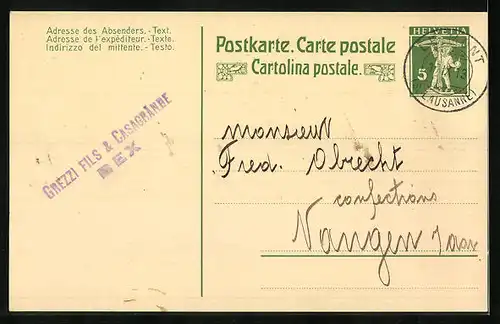 Adresse des Absenders.-Text.
Adresse de l'expéditeur.-Texte.
Indirizzo del mittente.-Testo.
Postkarte. Carte postale
Cartolina postale.
HELVETIA
5
NT
(LAUSANNE)
GREZZI FILS & CASAGRANDE
BEX
Monsieur
Fred. Obrecht
confections
Wangen